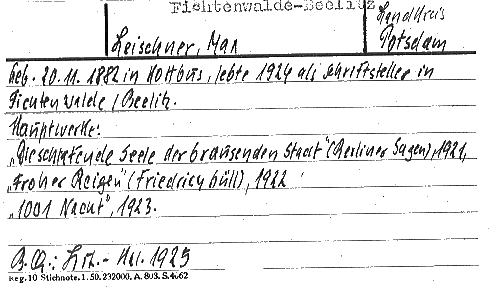 Fichtenwalde-Beelitz
Landkreis
Leischner, Max
Potsdam
Geb. 20.11.1882 in Kottbus, lebte 1924 als Schriftsteller in
Fichtenwalde / Beelitz.
Hauptwerke:
„Die schlafende Seele der brausenden Stadt" (Berliner Sagen), 1921,
„Froher Reigen" (Friedrich Güll), 1922
„1001 Nacht", 1923.
B.Q.: Lit.-Kal. 1925
Reg. 10 Stichnote. 1. 50. 232000. A. 803. S. 4662